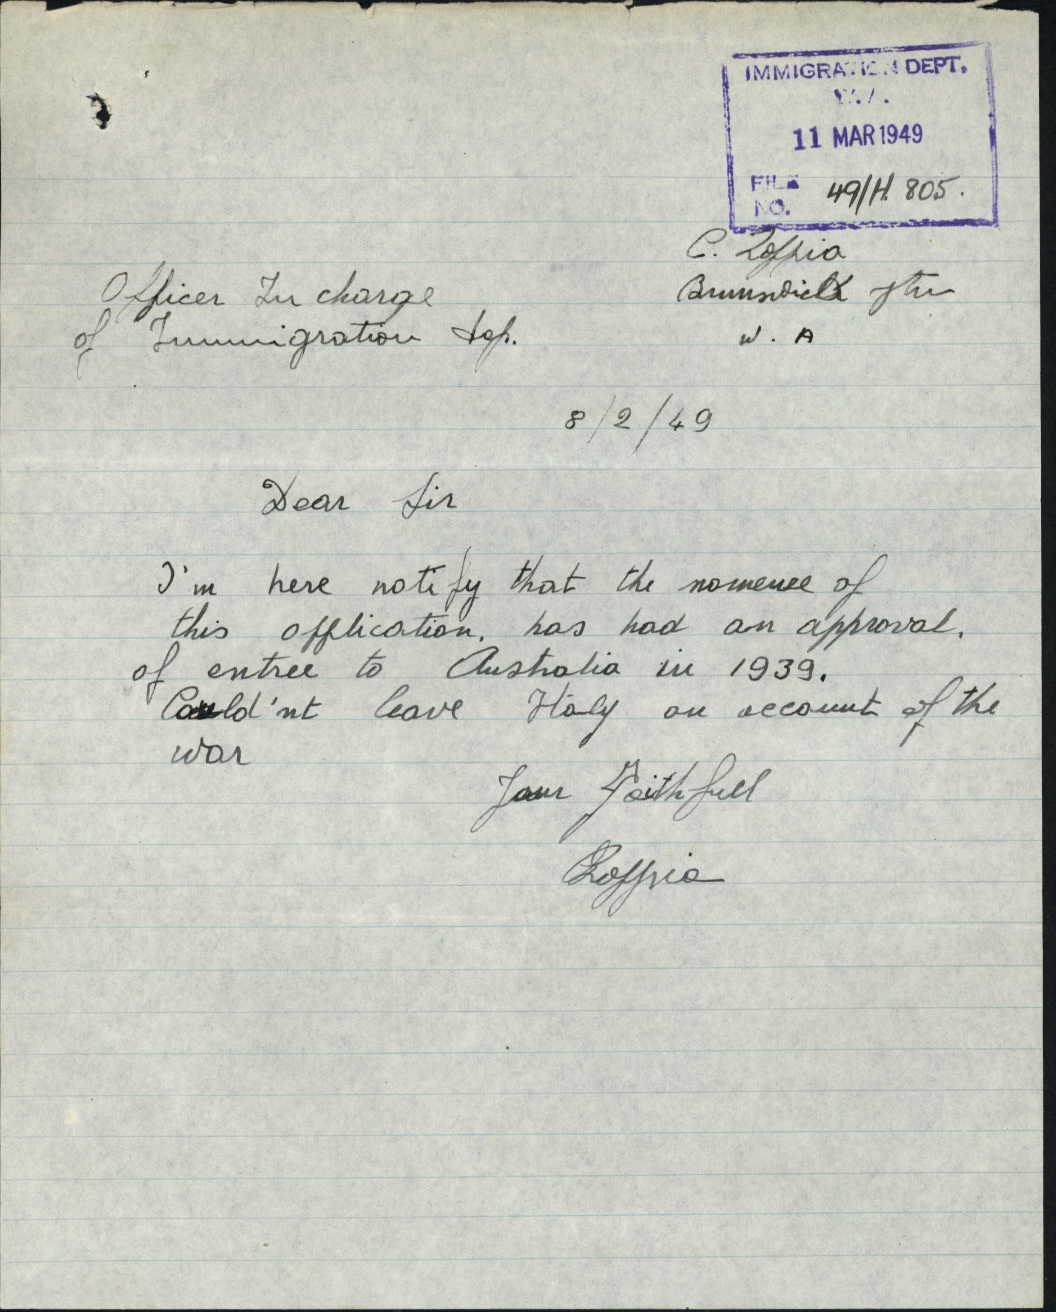 IMMIGRATION DEPT.
W.A.
11 MAR 1949
FILE NO. 49/H. 805.
C.
Brunswick Jtn
W. A
Officer In charge
of Immigration dep.
8/2/49
Dear Sir
I'm here notify that the nomenee of
this application. has had an approval.
of entree to Australia in 1939.
Could'nt leave Italy on account of the
war
Your Faithfull